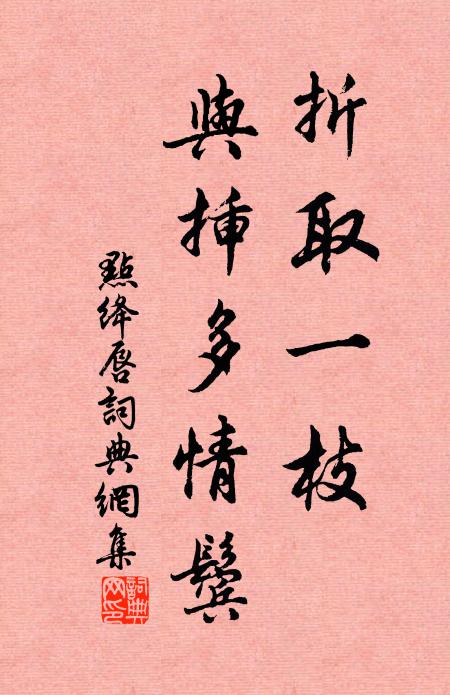 折取一枝
與插多情鬢
點絳唇詞典網集
詞典
网印